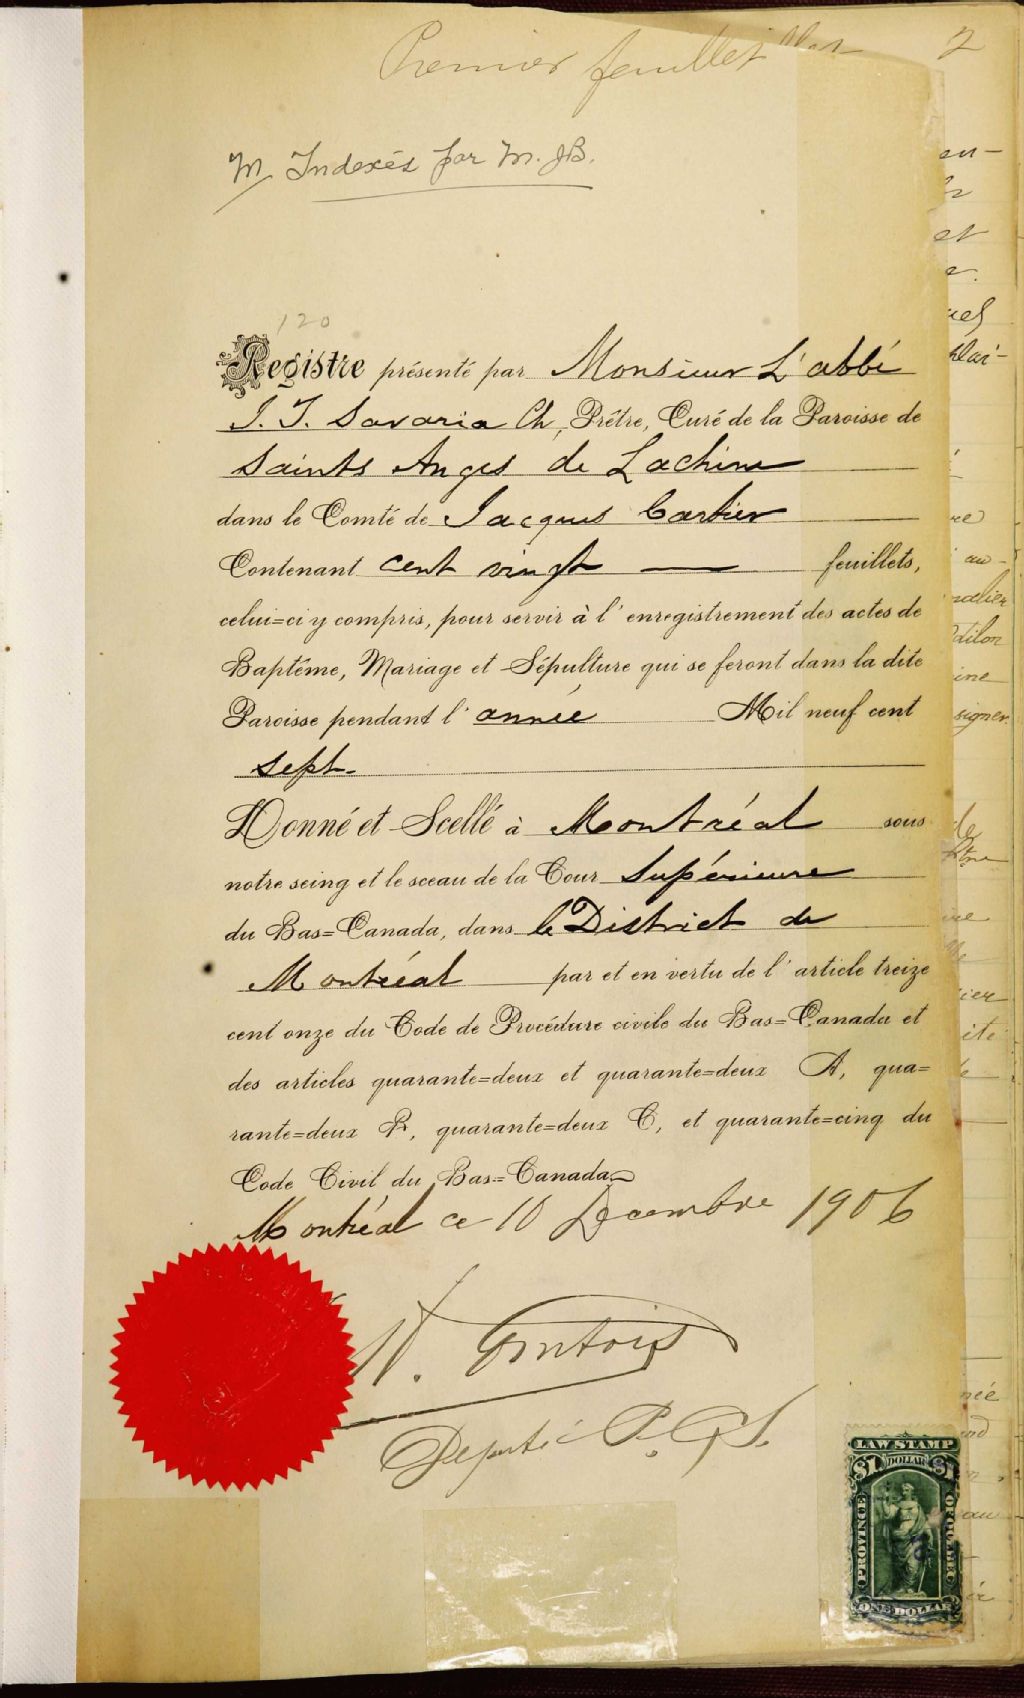 Premier feuillet
2
M Indexés par M. JB.
120
Registre présenté par Monsieur L'abbé
J. T. Savaria Ch, Prêtre, Curé de la Paroisse de
Saints Anges de Lachine
dans le Comté de Jacques Cartier
Contenant cent vingt feuillets,
celui=ci y compris, pour servir à l'enregistrement des actes de
Baptême, Mariage et Sépulture qui se feront dans la dite
Paroisse pendant l'année Mil neuf cent
sept.
Donné et Scellé à Montréal sous
notre seing et le sceau de la Cour Supérieure
du Bas=Canada, dans le District de
Montréal par et en vertu de l'article treize
cent onze du Code de Procédure civile du Bas=Canada et
des articles quarante=deux et quarante=deux A, qua=
rante=deux B, quarante=deux C, et quarante=cinq du
Code Civil du Bas=Canada
Montréal ce 10 Decembre 1906
Député P. C. S.
LAW STAMP
$1 DOLLAR $1
PROVINCE OF QUEBEC
ONE DOLLAR